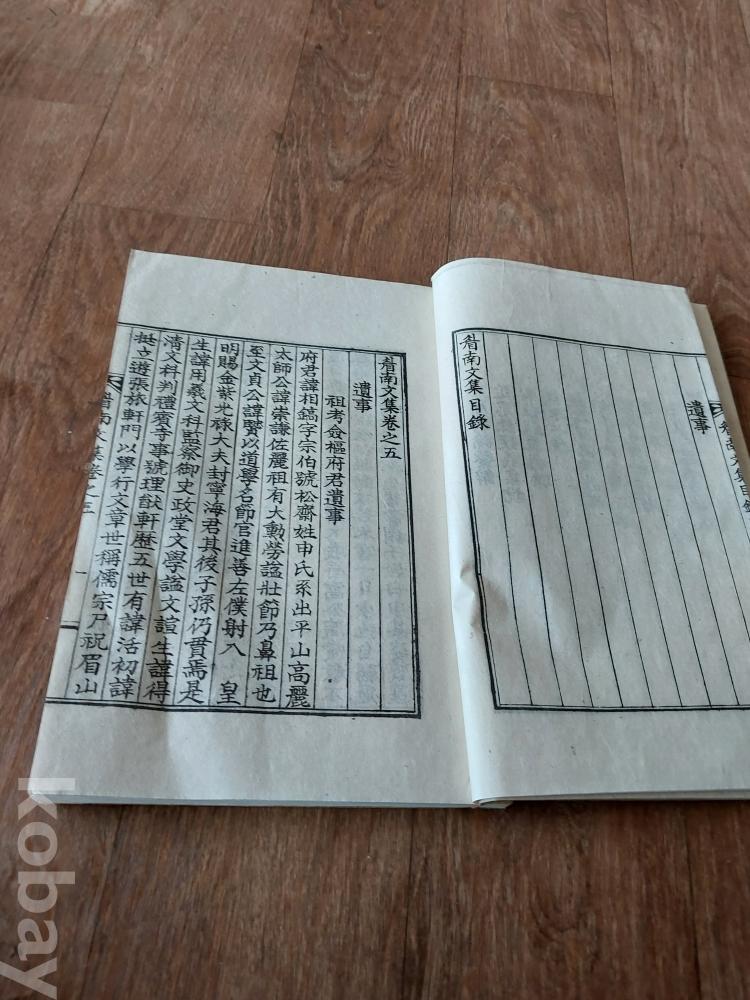 遺事
眉南文集目錄
眉南文集卷之五
遺事
祖考僉樞府君遺事
府君諱相鎬字宗伯號松齋姓申氏系出平山高麗
太師公諱崇謙佐麗祖有大勳勞謚壯節乃鼻祖也
至文貞公諱賢以道學名節官進善左僕射入 皇
明賜金紫光祿大夫封寧海君其後子孫仍貫焉是
生諱用羲文科監察御史政堂文學謚文諠生諱得
清文科判禮賓寺事號理猷軒歷五世有諱活初諱
挺立遊張旅軒門以學行文章世稱儒宗尸祝眉山
眉南文集卷之五
一
kobay